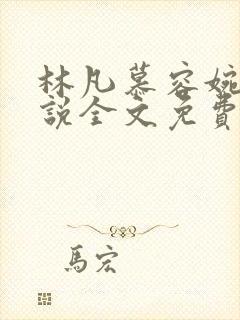 林凡慕容婉
說全文免費
馬宏